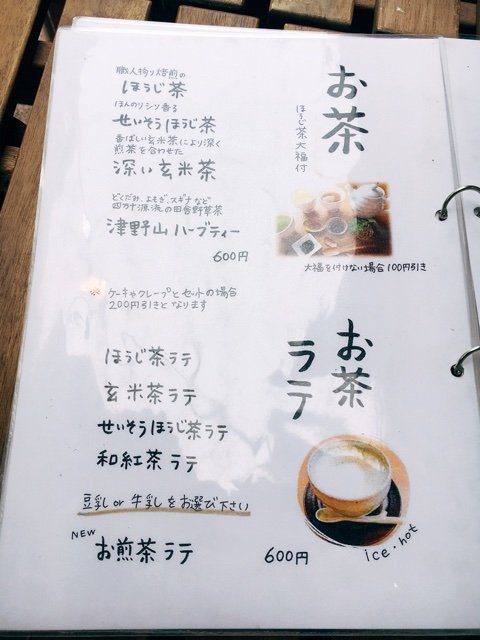 お茶
ほうじ茶大福付
職人拘り焙煎の
ほうじ茶
ほんのりシソ香る
せいそうほうじ茶
香ばしい玄米茶により深く
煎茶を合わせた
深い玄米茶
どくだみ、よもぎ、スギナなど
四万十源流の田舎野草茶
津野山ハーブティー
600円
大福を付けない場合100円引き
ケーキやクレープとセットの場合
200円引きとなります
お茶
ラテ
ほうじ茶ラテ
玄米茶ラテ
せいそうほうじ茶ラテ
和紅茶ラテ
豆乳or牛乳をお選び下さい
NEW
お煎茶ラテ
600円
ice・hot